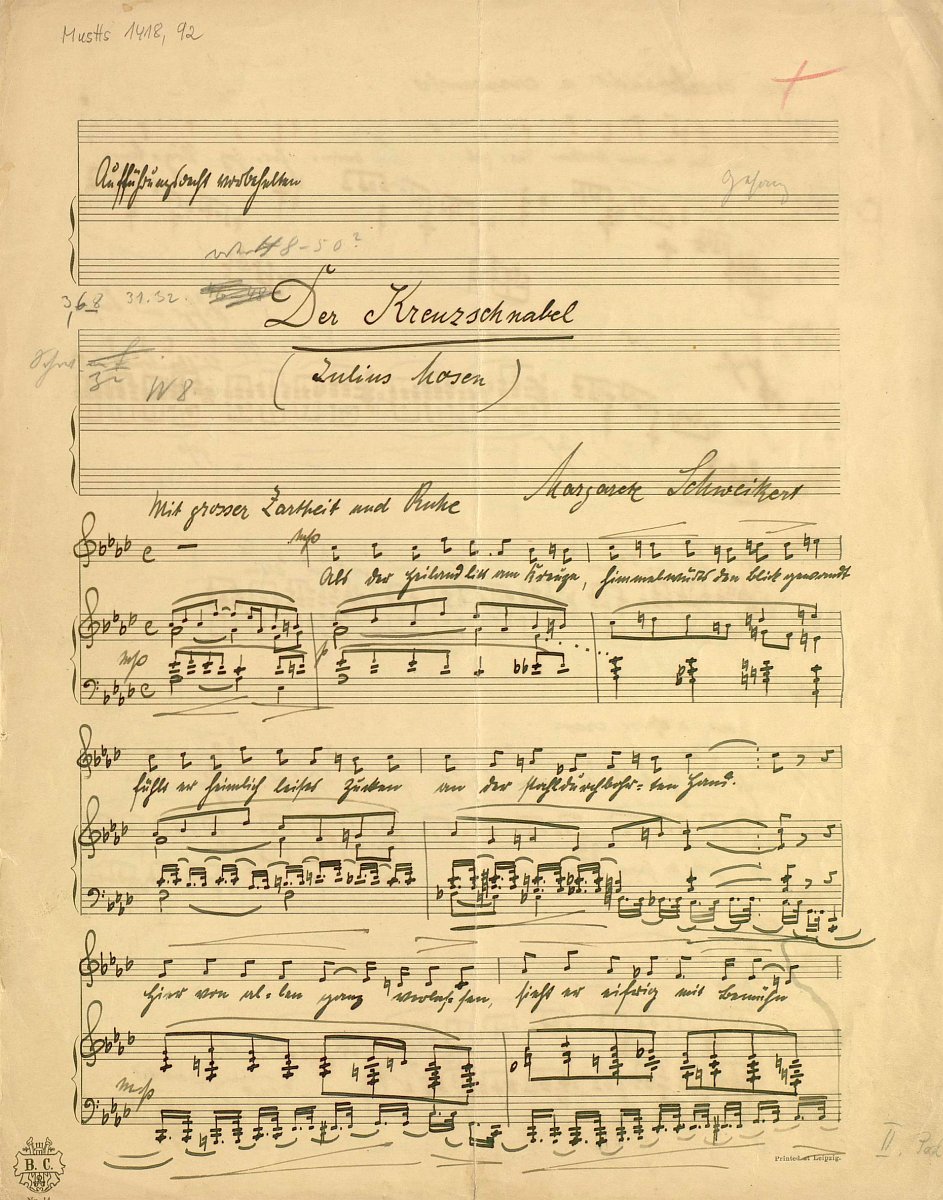 MusHs 1418, 92
Aufführungsrecht vorbehalten
Gesang
48-50?
3,6 8 31.32.
Der Kreuzschnabel
(Julius Mosen)
Margarete Schweikert
Mit grosser Zartheit und Ruhe
mp
Als der Heiland litt am Kreuze, himmelwärts den Blick gewandt
mp
p
fühlt er heimlich leises Zucken an der stahldurchbohr-ten Hand.
Hier von al-len ganz verlas-sen, sieht er eifrig mit Bemühn
mp
B. C.
No. 14
Printed at Leipzig.
II.